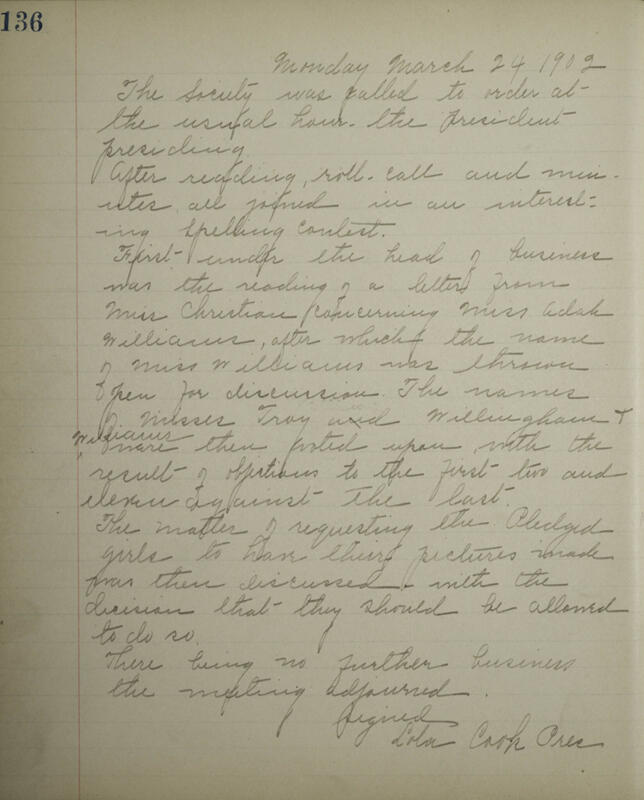 136
Monday March 24 1902
The Society was called to order at
the usual hour. the president
presiding
After reading, roll-call and min-
utes, all joined in an interest-
ing spelling contest.
First under the head of business
was the reading of a letter from
Miss Christian concerning Miss Adah
Williams, after which the name
of Miss Williams was thrown
open for discussion. The names
of Misses Troy and Willingham +
Williams
were then voted upon, with the
result of objections to the first two and
eleven against the last.
The matter of requesting the Pledged
girls to have their pictures made
was then discussed, with the
decision that they should be allowed
to do so.
There being no further business
the meeting adjourned.
Signed
Lola Cook Pres